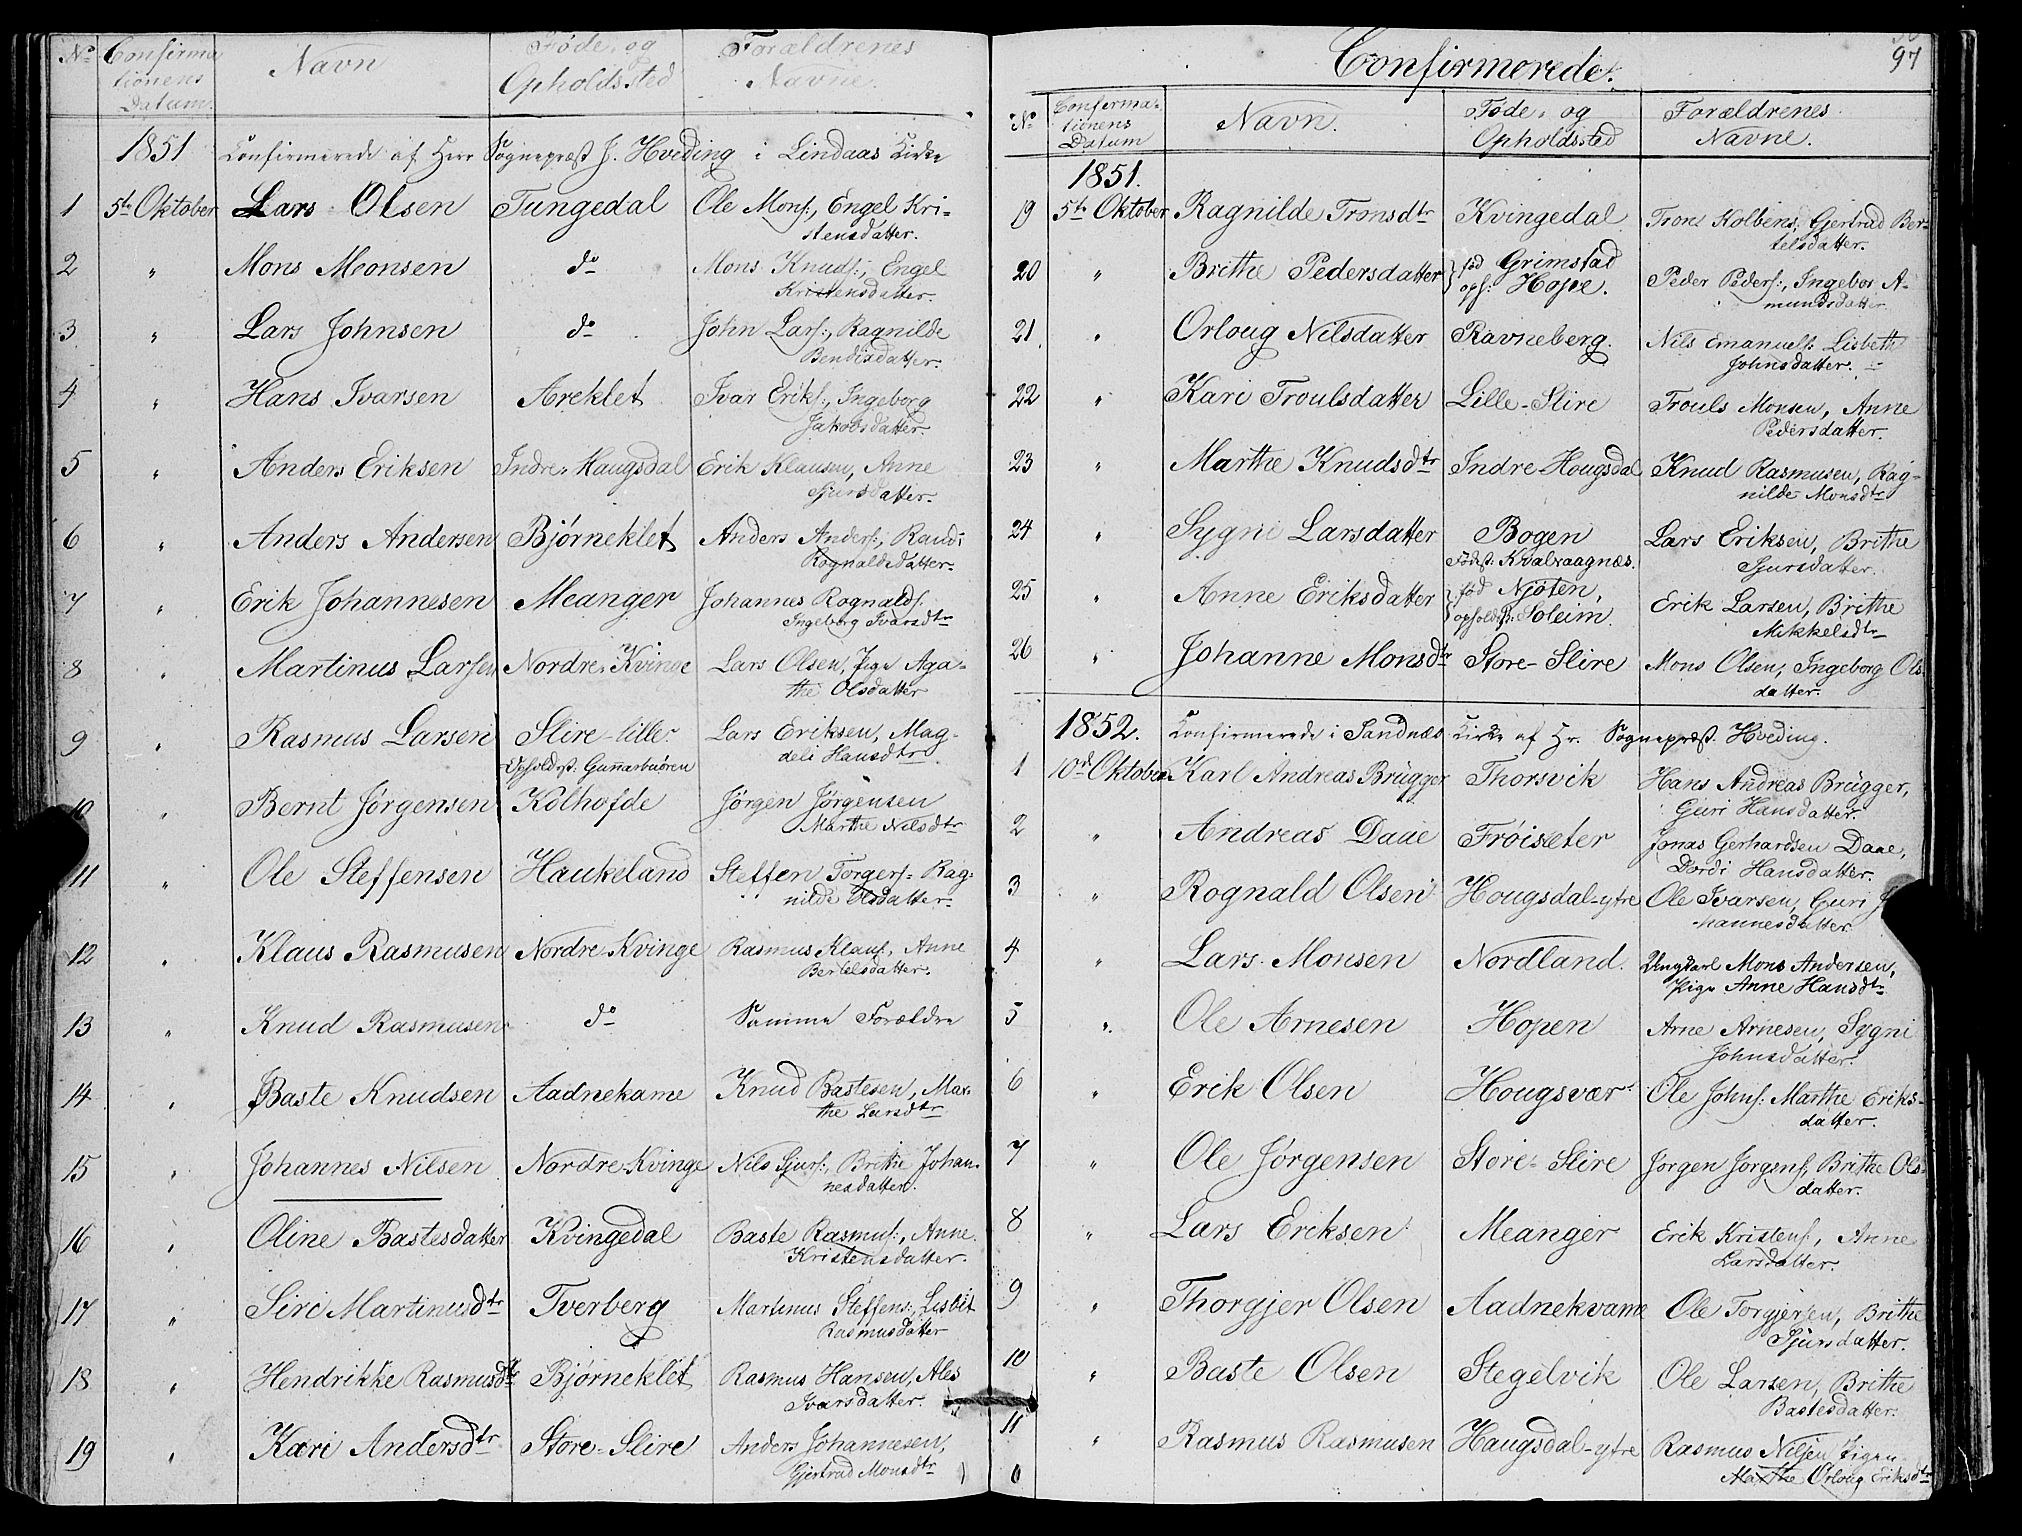 No Confirmationens Datum. Navn Føde- og Opholdssted Forældrenes Navne.
1851 Confirmerede af Herr Sognepræst J. Hveding i Lindaas Kirke
1 5te Oktober Lars Olsen Tungedal Ole Mons:, Engel Kri-
stensdatter.
2 " Mons Monsen do Mons Knuds:, Engel
Kristensdatter.
3 " Lars Johnsen do John Lars:, Ragnilde
Bendixdatter.
4 " Hans Ivarsen Areklet Ivar Eriks:, Ingeborg
Jakobsdatter.
5 " Anders Eriksen Indre-Haugsdal Erik Klausen, Anne
Sjursdatter.
6 " Anders Andersen Bjørneklet Anders Anders:, Randi
Rognaldsdatter.
7 " Erik Johannesen Meanger Johannes Rognalds:
Ingeborg Ivarsdtr
8 " Martinus Larsen Nordre-Kvinge Lars Olsen, Pige Aga-
the Olsdatter
9 " Rasmus Larsen Slire-lille Lars Eriksen, Mag-
Opholdsst: Gunnarbuören deli Hansdtr
10 " Bernt Jørgensen Kolhofde Jørgen Jørgensen
Marthe Nilsdtr
11 " Ole Steffensen Haukeland Steffen Torgers: Rag-
nilde Olsdatter.
12 " Klaus Rasmusen Nordre-Kvinge Rasmus Klaus:, Anne
Bertelsdatter.
13 " Knud Rasmusen do Samme Forældre
14 " Baste Knudsen Aadnekame Knud Bastesen, Mar-
the Larsdtr
15 " Johannes Nilsen Nordre-Kvinge Nils Sjurs:, Brithe Johan-
nesdatter.
16 " Oline Bastesdatter Kvingedal Baste Rasmus:, Anne
Kristensdatter.
17 " Siri Martinusdtr Tverberg Martinus Steffens:, Lisbet
Rasmusdatter
18 " Hendrikke Rasmusdtr Bjørneklet Rasmus Hansen, Ales
Ivarsdatter.
19 " Kari Andersdtr Store-Slire Anders Johannesen,
Gjertrud Monsdtr
97
Confirmerede.
No Confirmationens Datum Navn. Føde- og Opholdssted Forældrenes Navne.
1851.
19 5te Oktober Ragnilde Tronsdtr Kvingedal Tron Kolbens:, Gjertrud Ber-
telsdatter.
20 " Brithe Pedersdatter fød Grimstad
oph: Hope. Peder Peders:, Ingebor A-
mundsdatter
21 " Orloug Nilsdatter Ravneberg. Nils Emanuels: Lisbeth
Johnsdatter.
22 " Kari Troulsdatter Lille-Slire Trouls Monsen, Anne
Pedersdatter.
23 " Marthe Knudsdtr Indre-Hougsdal Knud Rasmusen, Rag-
nilde Monsdtr
24 " Sygni Larsdatter Bogen Lars Eriksen, Brithe
Fødst: Kvalvaagnæs. Sjursdatter.
25 " Anne Eriksdatter fød Njöten, Erik Larsen, Brithe
opholdsst: Soleim. Mikkelsdtr
26 " Johanne Monsdtr Store-Slire Mons Olsen, Ingeborg Ols-
datter.
1852. Confirmerede i Sandnæs Kirke af Hr. Sognepræst Hveding.
1 10de Oktober Karl Andreas Brügger Thorsvik Hans Andreas Brügger,
Guri Hansdatter.
2 " Andreas Daae Fröisæter Jonas Gerhardsen Daae,
Dordi Hansdatter.
3 " Rognald Olsen Hougsdal-ytre Ole Ivarsen, Guri
hannesdatter
4 " Lars Monsen Nordland. Ungkarl Mons Andersen,
Pige Anne Hansdtr
5 " Ole Arnesen Hopen Arne Arnesen, Sygni
Johnsdatter.
6 " Erik Olsen Hougsvær Ole Johns: Marthe Eriks-
datter.
7 " Ole Jørgensen Store-Slire Jorgen Jorgens:, Brithe Ols-
datter.
8 " Lars Eriksen Meanger Erik Kristens:, Anne
Larsdatter.
9 " Thorgjer Olsen Aadnekvame Ole Torgjersen, Brithe
Sjursdatter.
10 " Baste Olsen Stegelvik Ole Larsen, Brithe
Bastesdatter.
11 " Rasmus Rasmusen Haugsdal-ytre Rasmus Nilsen Pigen
Marthe Orloug Eriksdtr